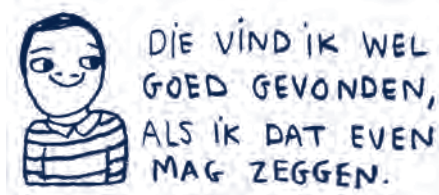 DIE VIND IK WEL
GOED GEVONDEN,
ALS IK DAT EVEN
MAG ZEGGEN.